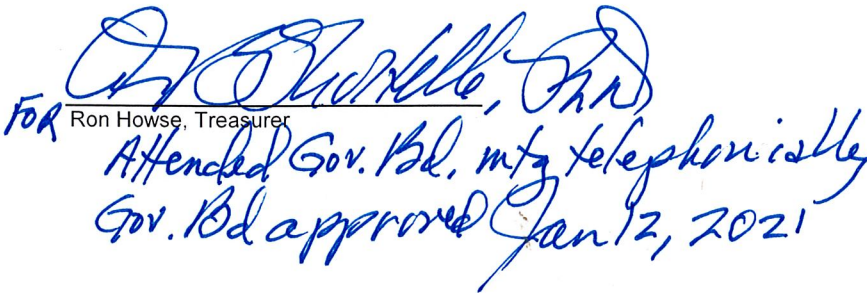 PhD
FOR Ron Howse, Treasurer
Attended Gov. Bd. mtg telephonically
Gov. Bd approved Jan 12, 2021